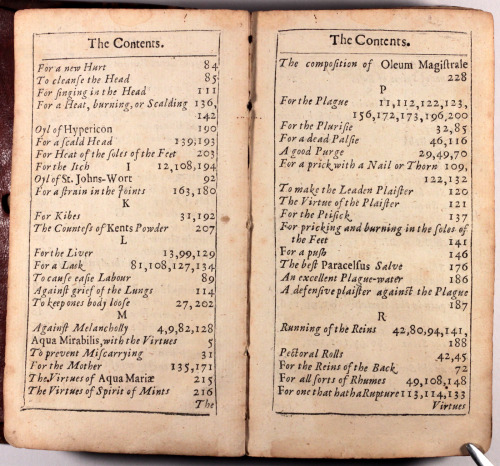 The Contents.
For a new Hurt 84
To cleanſe the Head 85
For ſinging in the Head 111
For a Heat, burning, or Scalding 136,
142
Oyl of Hypericon 190
For a ſcald Head 139,193
For Heat of the ſoles of the Feet 203
For the Itch 12,108,194
Oyl of St. Johns-Wort 92
For a ſtrain in the Joints 163,180
K
For Kibes 31,192
The Counteſs of Kents Powder 207
L
For the Liver 13,99,129
For a Lask 81,108,127,134
To cauſe eaſie Labour 89
Againſt grief of the Lungs 114
To keep ones body looſe 27,202
M
Againſt Melancholly 4,9,82,128
Aqua Mirabilis, with the Virtues 5
To prevent Miſcarrying 31
For the Mother 135,171
The Virtues of Aqua Mariæ 215
The Virtues of Spirit of Mints 216
The
The Contents.
The compoſition of Oleum Magiſtrale
228
P
For the Plague 11,112,122,123,
156,172,173,196,200
For the Pluriſie 32,85
For a dead Palſie 46,116
A good Purge 29,49,70
For a prick with a Nail or Thorn 109,
122,132
To make the Leaden Plaiſter 120
The Virtue of the Plaiſter 121
For the Ptiſick 137
For pricking and burning in the ſoles of
the Feet 141
For a puſh 146
The beſt Paracelſus Salve 176
An excellent Plague-water 186
A defenſive plaiſter againſt the Plague
187
R
Running of the Reins 42,80,94,141,
188
Pectoral Rolls 42,45
For the Reins of the Back 72
For all ſorts of Rhumes 49,108,148
For one that hath a Rupture 113,114,133
Virtues